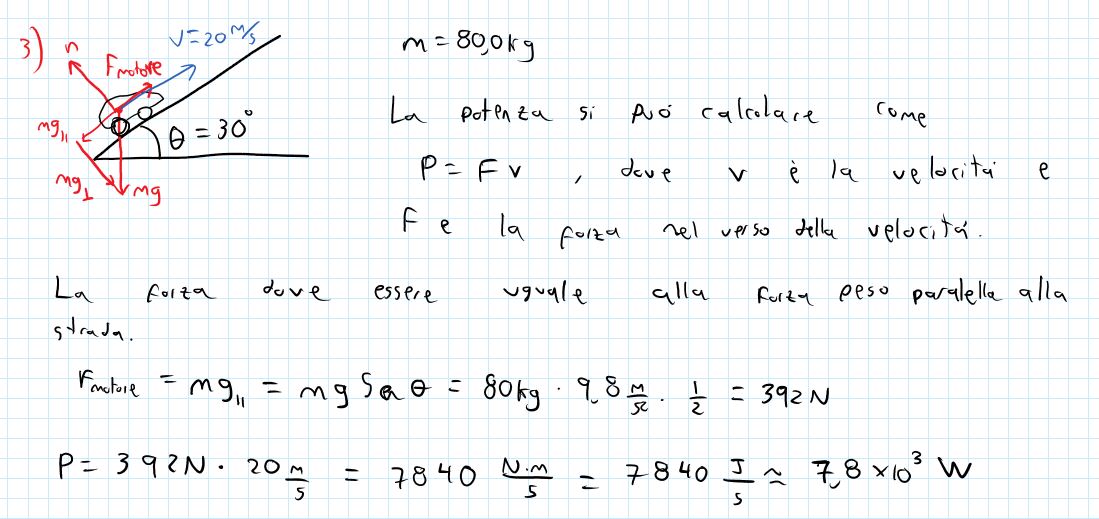 3)
n
F motore
V = 20 m/s
mg∥
θ = 30°
mg⊥
mg
m = 80,0 kg
La potenza si può calcolare come
P = F v , dove v è la velocità e
F e la forza nel verso della velocità.
La forza dove essere uguale alla forza peso paralella alla
strada.
Fmotore = mg∥ = mg Sen θ = 80 kg · 9,8 m/s² · 1/2 = 392 N
P = 392 N · 20 m/s = 7840 N·m/s = 7840 J/s ≈ 7,8 × 10³ W